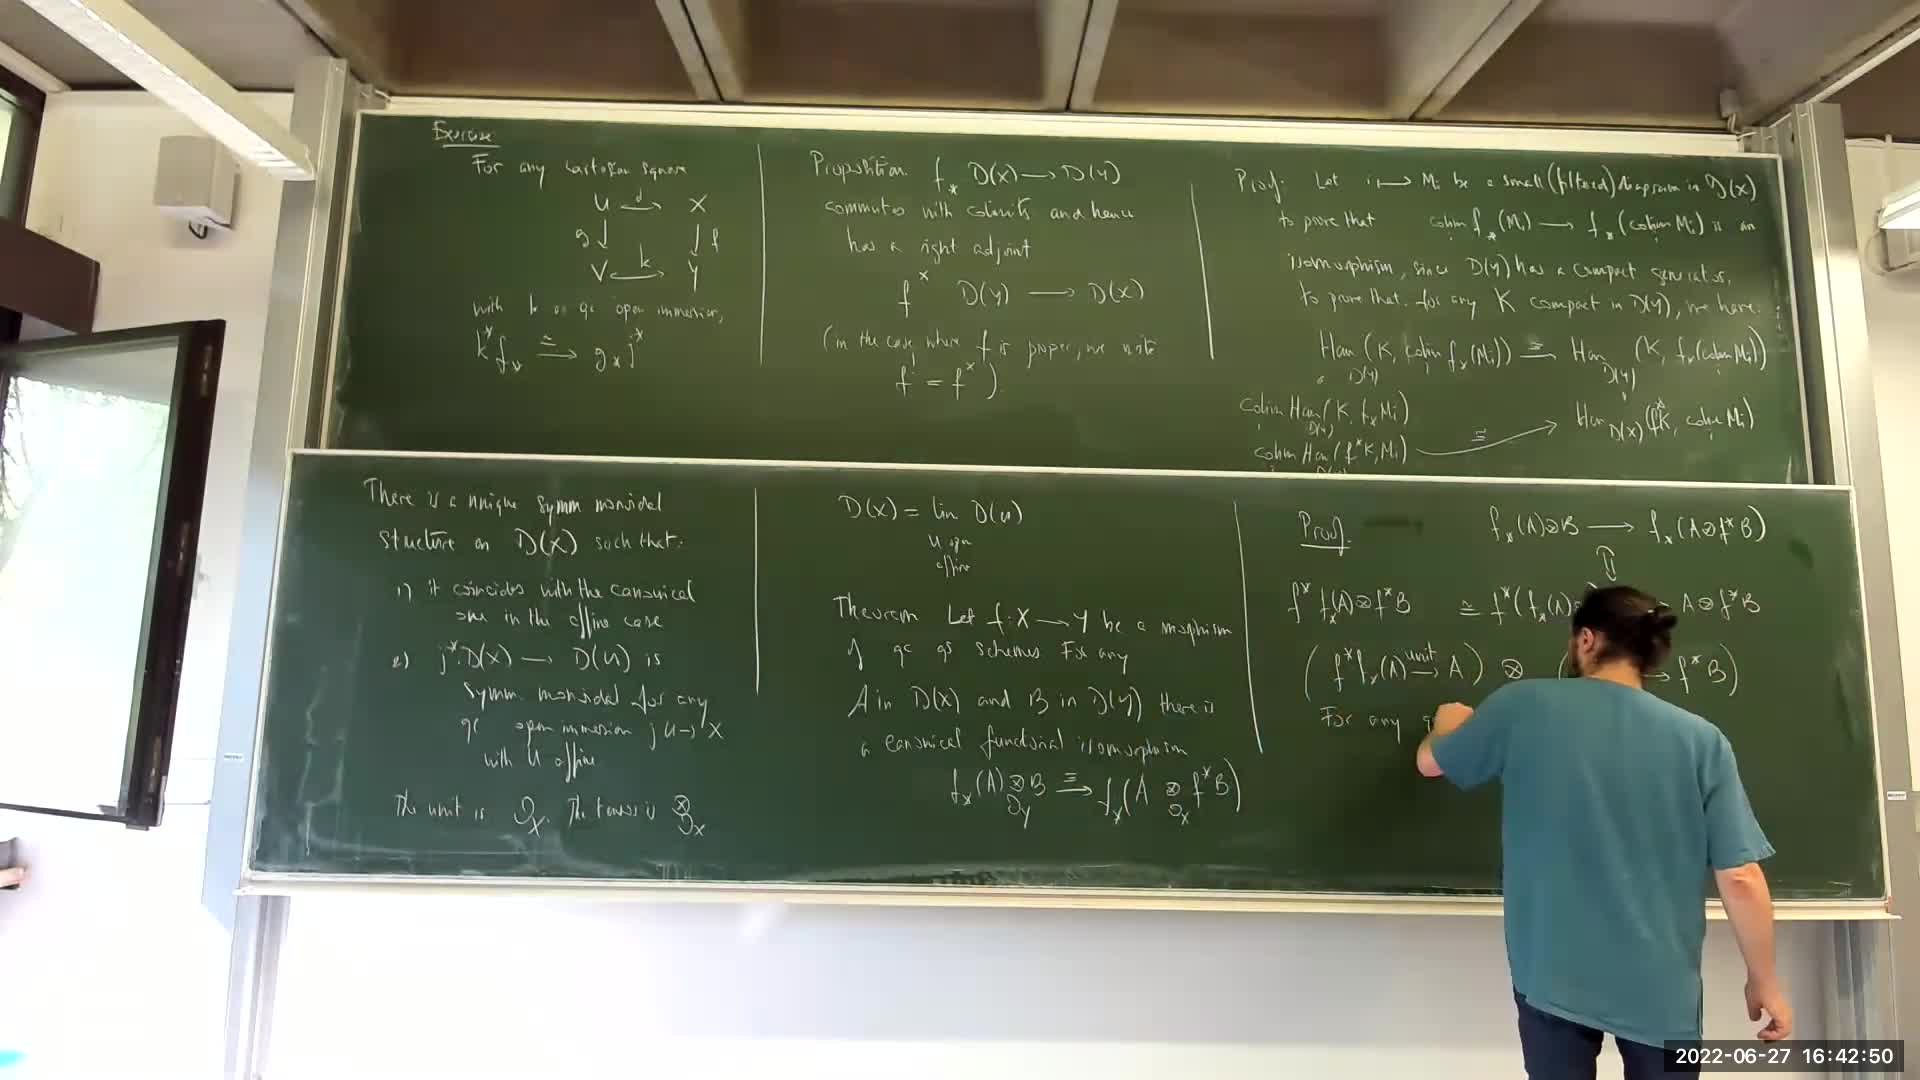 Exercise
For any cartesian square
U →j X
g ↓ ↓ f
V →k Y
with k a qc open immersion,
k^* f_* ≅→ g_* j^*
Proposition f_* D(X) → D(Y)
commutes with colimits and hence
has a right adjoint
f^× D(Y) → D(X)
(in the case where f is proper, we write
f^! = f^×).
Proof: Let i ↦ M_i be a small (filtered) diagram in D(X)
to prove that colim_i f_*(M_i) → f_*(colim_i M_i) is an
isomorphism, since D(Y) has a compact generator,
to prove that for any K compact in D(Y), we have:
Hom_{D(Y)}(K, colim_i f_*(M_i)) ≅→ Hom_{D(Y)}(K, f_*(colim_i M_i))
colim_i Hom_{D(Y)}(K, f_* M_i)
colim_i Hom(f^*K, M_i) ≅→ Hom_{D(X)}(f^*K, colim_i M_i)
There is a unique symm monoidal
structure on D(X) such that:
1) it coincides with the canonical
one in the affine case
2) j^*: D(X) → D(U) is
symm. monoidal for any
qc open immersion j U → X
with U affine
The unit is O_X. The tensor is ⊗_{O_X}
D(X) = lim D(U)
U open
affine
Theorem Let f: X → Y be a morphism
of qc qs schemes For any
A in D(X) and B in D(Y) there is
a canonical functorial isomorphism
f_*(A) ⊗_{O_Y} B ≅→ f_*(A ⊗_{O_X} f^*B)
Proof. f_*(A)⊗B → f_*(A⊗f^*B)
⇕
f^*f_*(A)⊗f^*B ≅ f^*(f_*(A) A⊗f^*B
(f^*f_*(A) →unit A) ⊗ ( → f^*B)
For any
2022-06-27 16:42:50